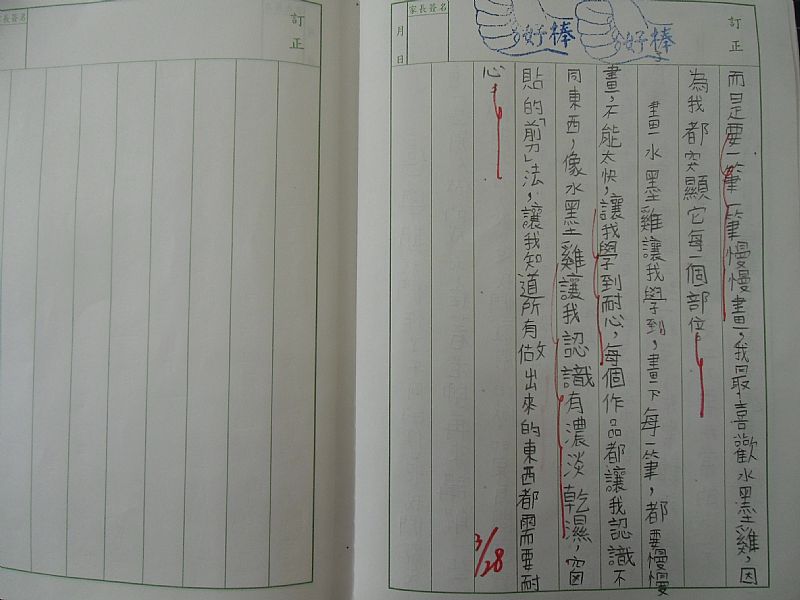 訂正
好棒
好棒
家長簽名
月 日
而是要一筆一筆慢慢畫，我最喜歡水墨雞，因
為我都突顯它每一個部位。
畫水墨雞讓我學到，畫下每一筆，都要慢慢
畫，不能太快，讓我學到耐心，每個作品都讓我認識不
同東西，像水墨雞讓我認識有濃淡乾濕，窗
貼的「剪刀」法，讓我知道所有做出來的東西都需要耐
心。
3/28
訂正
家長簽名